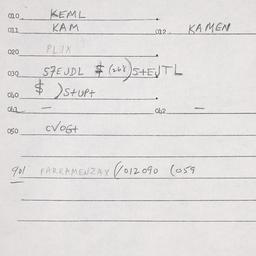 010 KEML
011 KAM 012. KAMEN
020 PLIX
030
040 $ )StUPt
041 — 042 —
050 CVOGt
901 FARKAMENZAY (/012090 (059